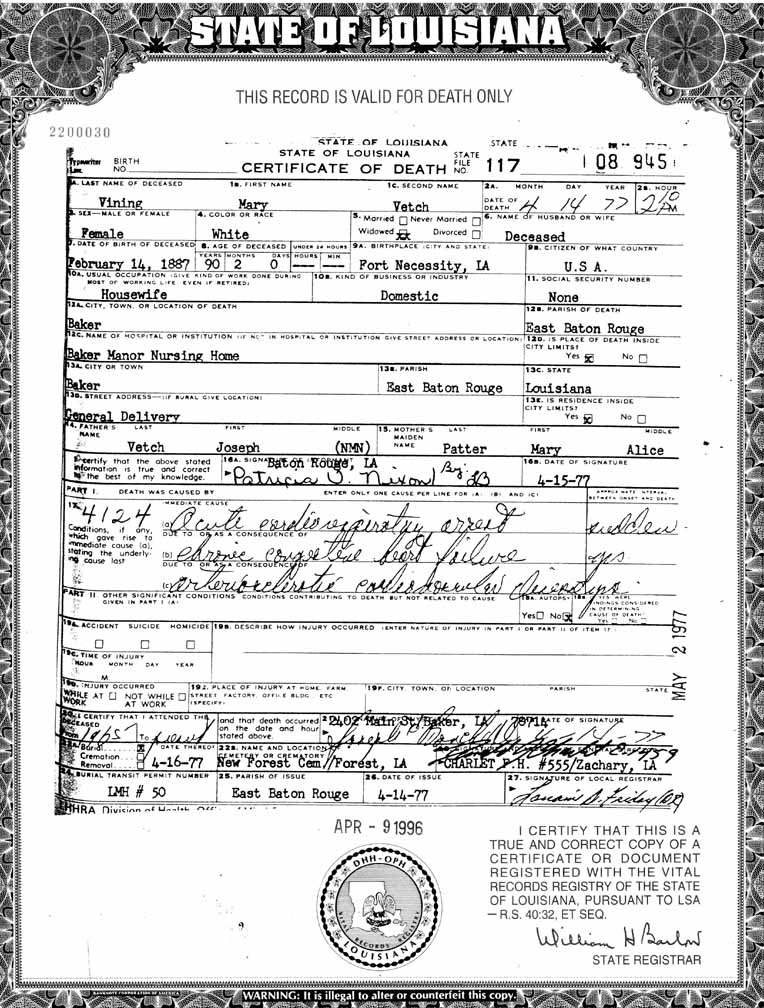 STATE OF LOUISIANA
THIS RECORD IS VALID FOR DEATH ONLY
2200030
STATE OF LOUISIANA STATE
STATE OF LOUISIANA
BIRTH NO. CERTIFICATE OF DEATH STATE FILE NO. 117 108 945
1A. LAST NAME OF DECEASED 1B. FIRST NAME 1C. SECOND NAME 2A. MONTH DAY YEAR 2B. HOUR
Vining Mary Vetch DATE OF DEATH 4 14 77 2:10 PM
3. SEX—MALE OR FEMALE 4. COLOR OR RACE 5. Married Never Married 6. NAME OF HUSBAND OR WIFE
Female White Widowed Divorced Deceased
7. DATE OF BIRTH OF DECEASED 8. AGE OF DECEASED UNDER 24 HOURS 9A. BIRTHPLACE (CITY AND STATE) 9B. CITIZEN OF WHAT COUNTRY
YEARS MONTHS DAYS HOURS MIN
February 14, 1887 90 2 0 Fort Necessity, LA U.S A.
10A. USUAL OCCUPATION (GIVE KIND OF WORK DONE DURING MOST OF WORKING LIFE, EVEN IF RETIRED) 10B. KIND OF BUSINESS OR INDUSTRY 11. SOCIAL SECURITY NUMBER
Housewife Domestic None
12A. CITY, TOWN, OR LOCATION OF DEATH 12B. PARISH OF DEATH
Baker East Baton Rouge
12C. NAME OF HOSPITAL OR INSTITUTION (IF NOT IN HOSPITAL OR INSTITUTION GIVE STREET ADDRESS OR LOCATION) 12D. IS PLACE OF DEATH INSIDE CITY LIMITS?
Baker Manor Nursing Home Yes No
13A. CITY OR TOWN 13B. PARISH 13C. STATE
Baker East Baton Rouge Louisiana
13D. STREET ADDRESS—(IF RURAL GIVE LOCATION) 13E. IS RESIDENCE INSIDE CITY LIMITS?
General Delivery Yes No
14. FATHER'S NAME LAST FIRST MIDDLE 15. MOTHER'S MAIDEN NAME LAST FIRST MIDDLE
Vetch Joseph (NMN) Patter Mary Alice
I certify that the above stated information is true and correct to the best of my knowledge. 16A. Baton Rouge, LA 16B. DATE OF SIGNATURE
Patricia V. Nixon By: 4-15-77
PART I. DEATH WAS CAUSED BY ENTER ONLY ONE CAUSE PER LINE FOR (A) (B) AND (C) APPROXIMATE INTERVAL BETWEEN ONSET AND DEATH
17. IMMEDIATE CAUSE
4124 (a) Acute cardiorespiratory arrest sudden
Conditions, if any, which gave rise to immediate cause (a), stating the underlying cause last
DUE TO OR AS A CONSEQUENCE OF
(b) chronic congestive heart failure yrs
DUE TO OR AS A CONSEQUENCE OF
(c) arteriosclerotic cardiovascular disease yrs
PART II OTHER SIGNIFICANT CONDITIONS CONDITIONS CONTRIBUTING TO DEATH BUT NOT RELATED TO CAUSE GIVEN IN PART I (A) 18A. AUTOPSY 18B. IF YES WERE FINDINGS CONSIDERED IN DETERMINING CAUSE OF DEATH?
Yes No Yes No
19A. ACCIDENT SUICIDE HOMICIDE 19B. DESCRIBE HOW INJURY OCCURRED (ENTER NATURE OF INJURY IN PART I OR PART II OF ITEM 17)
19C. TIME OF INJURY
HOUR MONTH DAY YEAR
M
19D. INJURY OCCURRED 19E. PLACE OF INJURY AT HOME, FARM STREET FACTORY, OFFICE BLDG ETC (SPECIFY) 19F. CITY, TOWN, OR LOCATION PARISH STATE
WHILE AT WORK NOT WHILE AT WORK
MAY 2 1977
20. I CERTIFY THAT I ATTENDED THE DECEASED and that death occurred on the date and hour stated above. 2402 Main St/Baker, LA DATE OF SIGNATURE
From 1965 To
Burial DATE THEREOF 22B. NAME AND LOCATION CEMETERY OR CREMATORY
Cremation
Removal 4-16-77 New Forest Cem./Forest, LA CHARLET F.H. #555/Zachary, LA
24. BURIAL TRANSIT PERMIT NUMBER 25. PARISH OF ISSUE 26. DATE OF ISSUE 27. SIGNATURE OF LOCAL REGISTRAR
LMH # 50 East Baton Rouge 4-14-77
HHRA Division of Health
APR - 9 1996
I CERTIFY THAT THIS IS A
TRUE AND CORRECT COPY OF A
CERTIFICATE OR DOCUMENT
REGISTERED WITH THE VITAL
RECORDS REGISTRY OF THE STATE
OF LOUISIANA, PURSUANT TO LSA
— R.S. 40:32, ET SEQ.
DHH-OPH
VITAL RECORDS REGISTRY
LOUISIANA
William H Barlow
STATE REGISTRAR
WARNING: It is illegal to alter or counterfeit this copy.